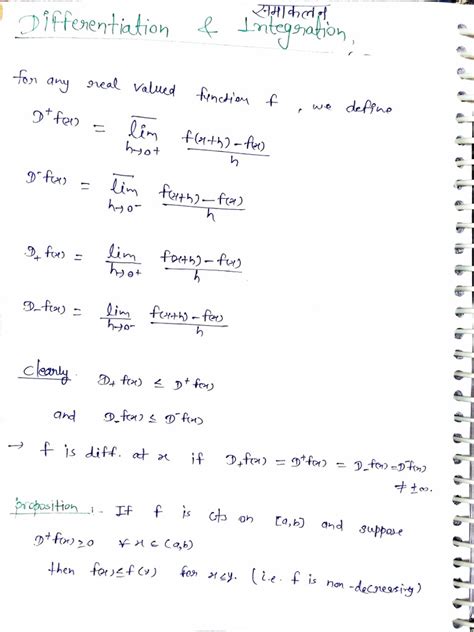 समाकलन
Differentiation & Integration,
for any real valued function f , we define
D⁺f(x) = \overline{lim}_{h→0+} \frac{f(x+h) – f(x)}{h}
D⁻f(x) = \overline{lim}_{h→0-} \frac{f(x+h) – f(x)}{h}
D₊f(x) = \underline{lim}_{h→0+} \frac{f(x+h) – f(x)}{h}
D₋f(x) = \underline{lim}_{h→0-} \frac{f(x+h) – f(x)}{h}
Clearly D₊f(x) ≤ D⁺f(x)
and D₋f(x) ≤ D⁻f(x)
→ f is diff. at x if D₊f(x) = D⁺f(x) = D₋f(x) = D⁻f(x)
≠ ±∞.
proposition :. If f is cts on [a,b] and suppose
D⁺f(x) ≥ 0 ∀ x ∈ (a,b)
then f(x) ≤ f(y) for x ≤ y. (i.e. f is non-decreasing)